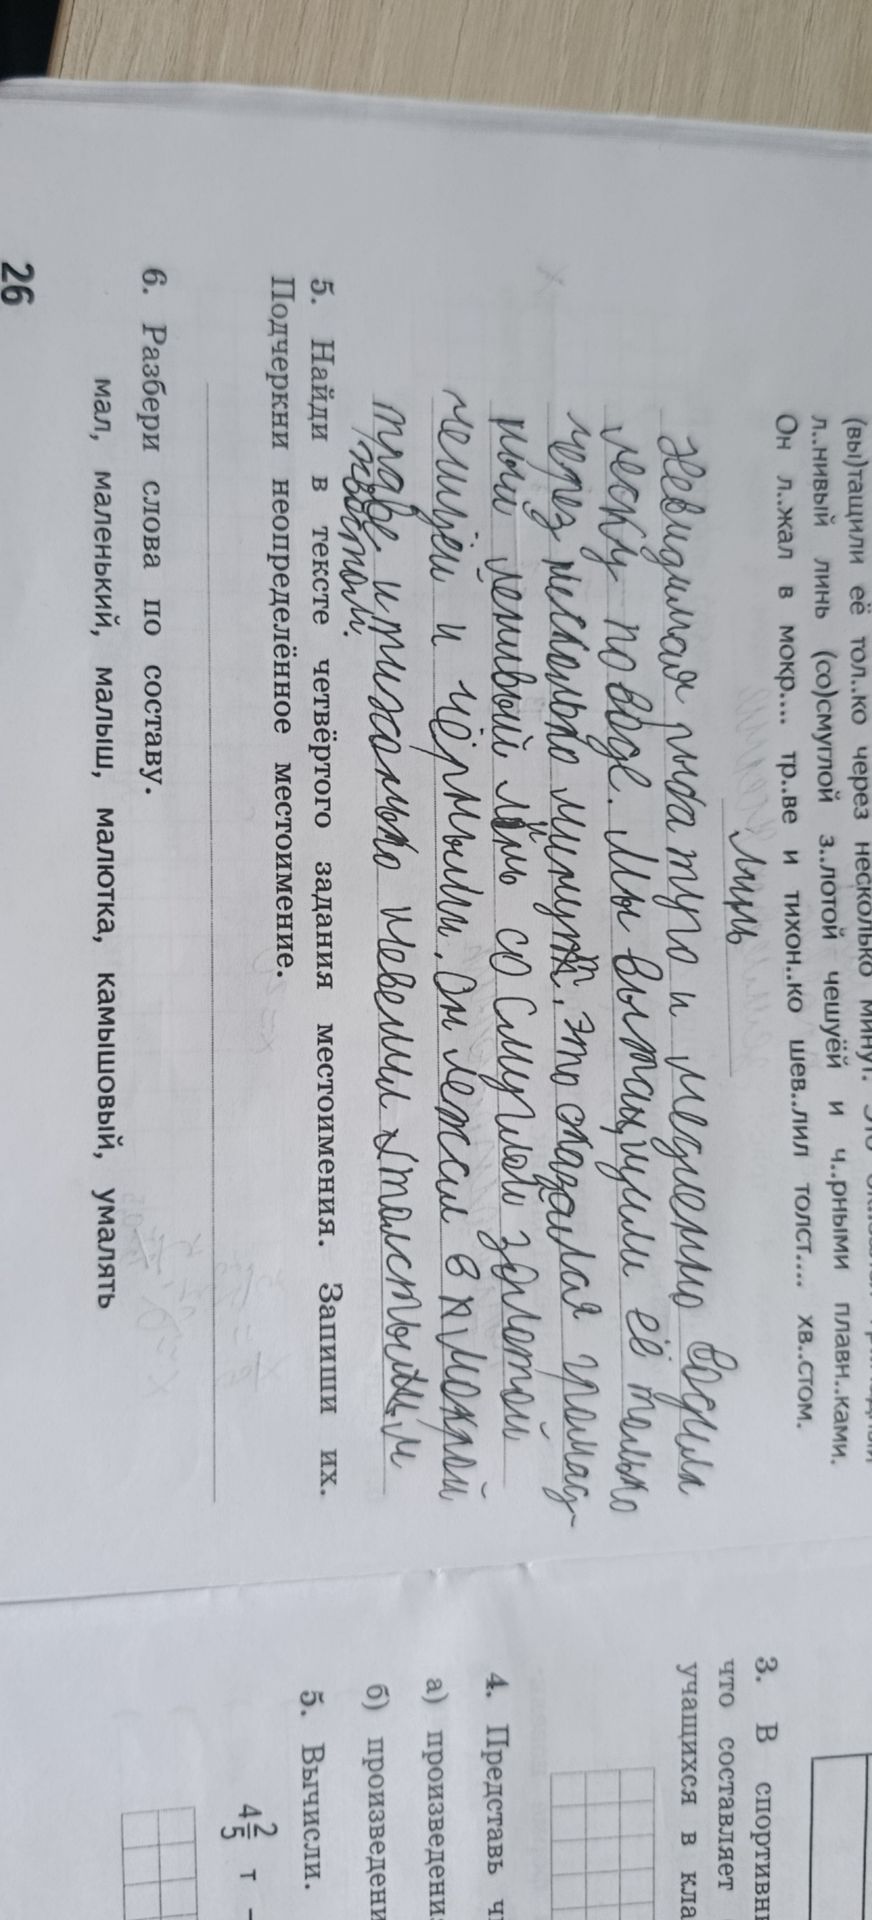 (вы)тащили её тол..ко через несколько минут.
л..нивый линь (со)смуглой з..лотой чешуёй и ч..рными плавн..ками.
Он л..жал в мокр.... тр..ве и тихон..ко шев..лил толст.... хв..стом.
Линь
Невидимая рыба туго и медленно водила
леску по воде. Мы вытащили её только
через несколько минут, это оказался громад-
ный ленивый линь со смуглой золотой
чешуёй и чёрными. Он лежал в мокрой
траве и тихонько шевелил толстым
хвостом.
5. Найди в тексте четвёртого задания местоимения. Запиши их.
Подчеркни неопределённое местоимение.
6. Разбери слова по составу.
мал, маленький, малыш, малютка, камышовый, умалять
26
3. В спортивн
что составляет
учащихся в кла
4. Представь ч
а) произведени
б) произведени
5. Вычисли.
4 2/5 т –